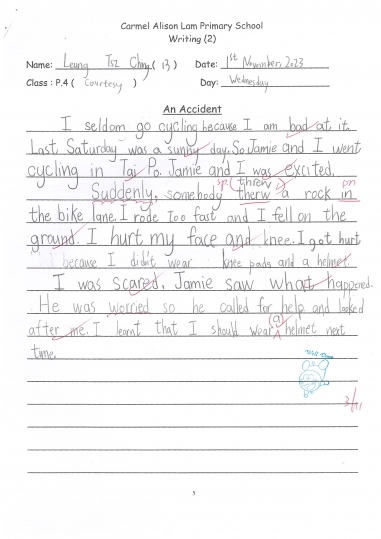 Carmel Alison Lam Primary School
Writing (2)
Name: Leung Tsz Ching ( 13 ) Date: 1st November, 2023
Class : P.4 ( Courtesy ) Day: Wednesday
An Accident
I seldom go cycling because I am bad at it.
Last Saturday was a sunny day. So Jamie and I went
cycling in Tai Po. Jamie and I was excited.
sp. threw on
Suddenly, somebody therw a rock in
the bike lane. I rode too fast and I fell on the
ground. I hurt my face and knee. I got hurt
because I didn't wear knee pads and a helmet.
I was scared. Jamie saw what happened.
He was worried so he called for help and looked
after me. I learnt that I should wear helmet next
a
time.
Well Done
3/11
5